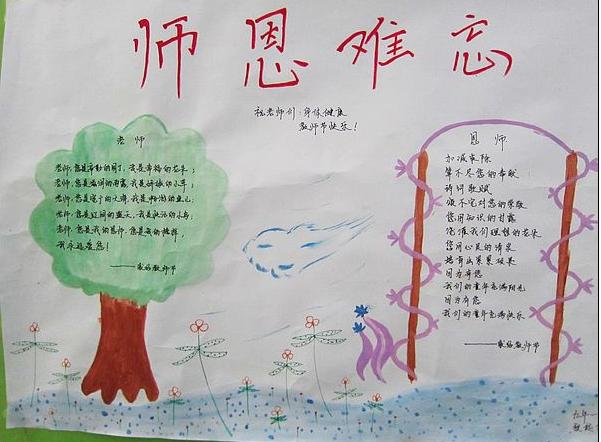 师恩难忘
祝老师们:身体健康
教师节快乐!
老师
老师,您是辛勤的园丁,我是幸福的花朵;
老师,您是滋润的雨露,我是娇嫩的小草;
老师,您是宽广的大海,我是畅游的鱼儿;
老师,您是辽阔的蓝天,我是快活的小鸟;
老师,您是我的恩师,您是我的榜样,
我永远爱您!
——献给教师节
恩师
加减乘除
算不尽您的奉献
诗词歌赋
颂不完对您的崇敬
您用知识的甘露
浇灌我们理想的花朵
您用心灵的清泉
培育出累累硕果
因为有您
我们的童年充满阳光
因为有您
我们的童年充满快乐
——献给教师节